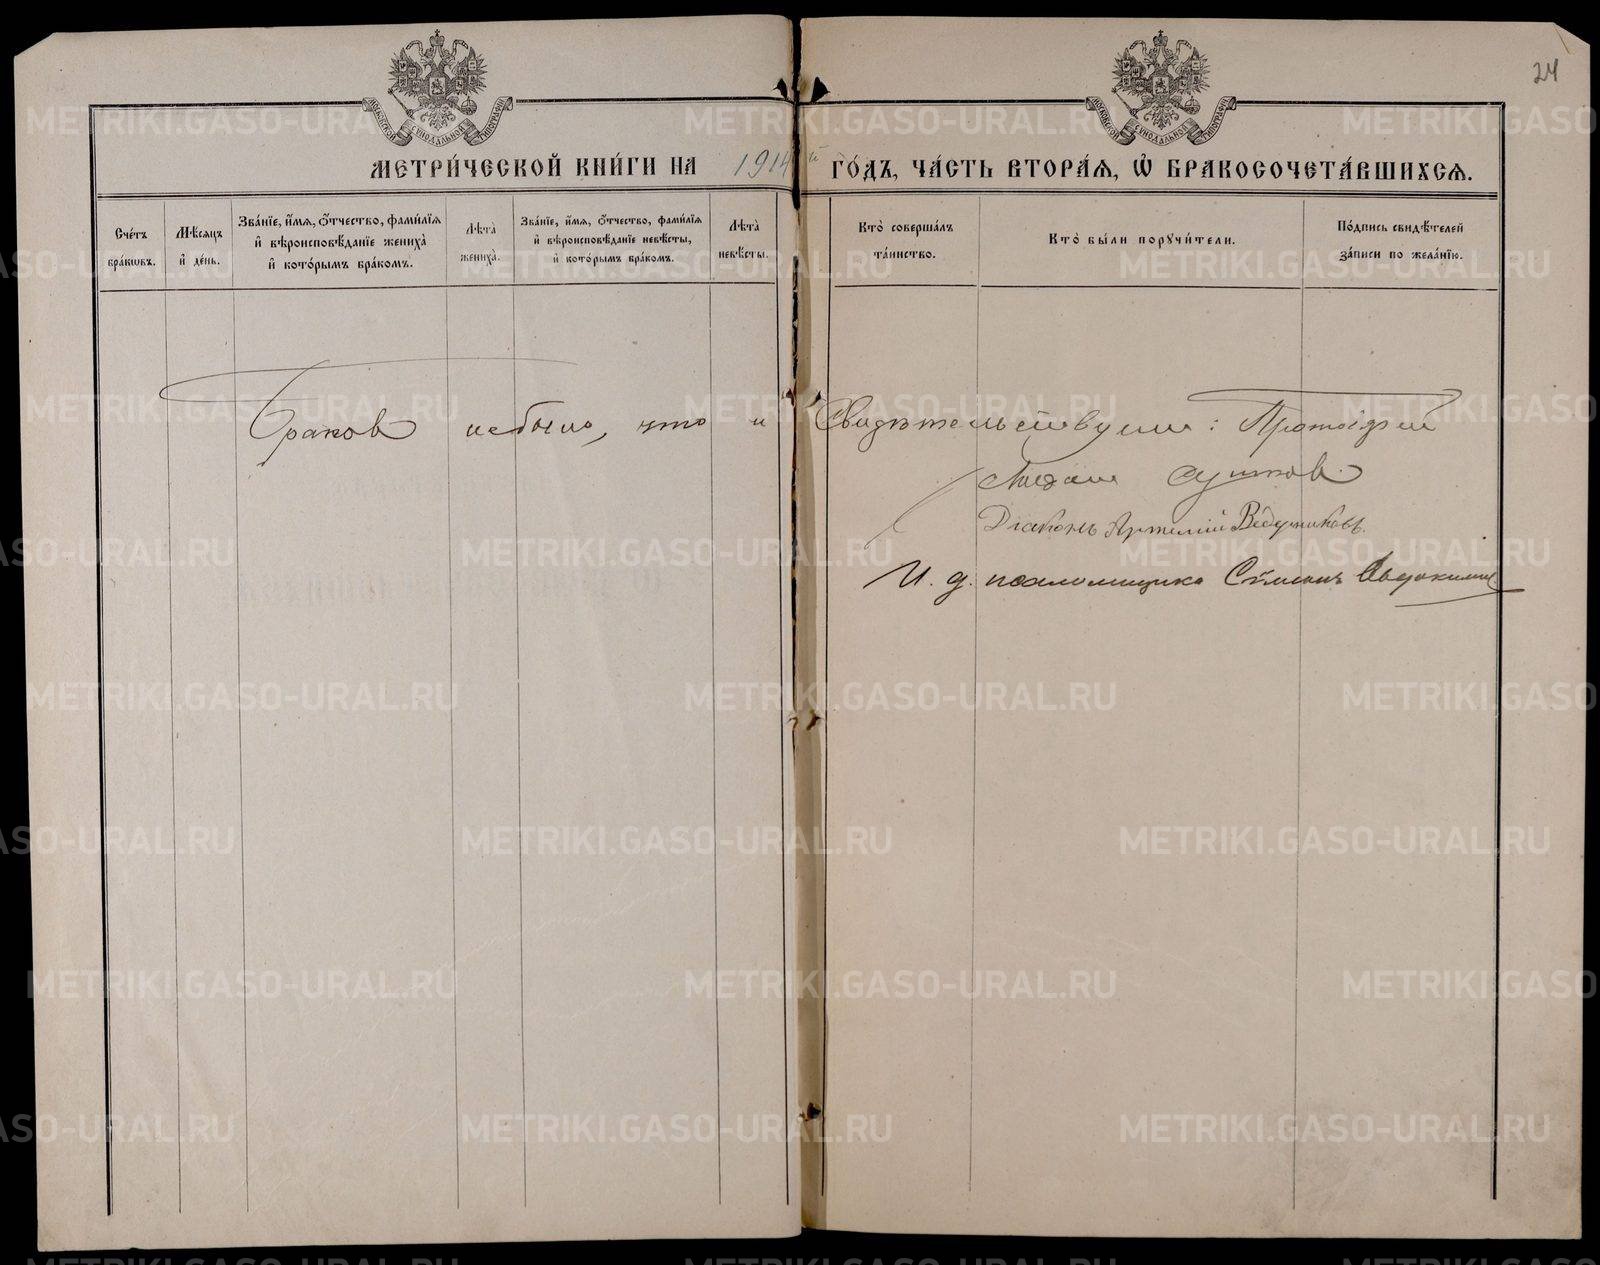 24
МОСКОВСКОЙ СѴНОДАЛЬНОЙ ТИПОГРАФІИ
МОСКОВСКОЙ СѴНОДАЛЬНОЙ ТИПОГРАФІИ
МЕТРИ́ЧЕСКОЙ КНИ́ГИ НА 1914й ГО́ДЪ, ЧА́СТЬ ВТОРА́Ѧ, Ѽ БРАКОСОЧЕТА́ВШИХСѦ.
Сче́тъ бра́кѡвъ.
Мѣ́сѧцъ и҆ де́нь.
Зва́нїе, и҆́мѧ, ѻ҆́тчество, фами́лїѧ и҆ вѣроисповѣ́данїе жениха̀ и҆ кото́рымъ бра́комъ.
Лѣ̑та̀ жениха̀.
Зва́нїе, и҆́мѧ, ѻ҆́тчество, фами́лїѧ и҆ вѣроисповѣ́данїе невѣ́сты, и҆ кото́рымъ бра́комъ.
Лѣ̑та̀ невѣ́сты.
Кто̀ соверша́лъ та́инство.
Кто̀ бы́ли поручи́тели.
По́дпись свидѣ́телей за́писи по жела́нїю.
Браков небыло, что и Свидѣтельствуем: Протоіерей
Сушков
Діаконъ Артемій Ведерниковъ.
И. д. псаломщика Сѵмеонъ
METRIKI.GASO-URAL.RU